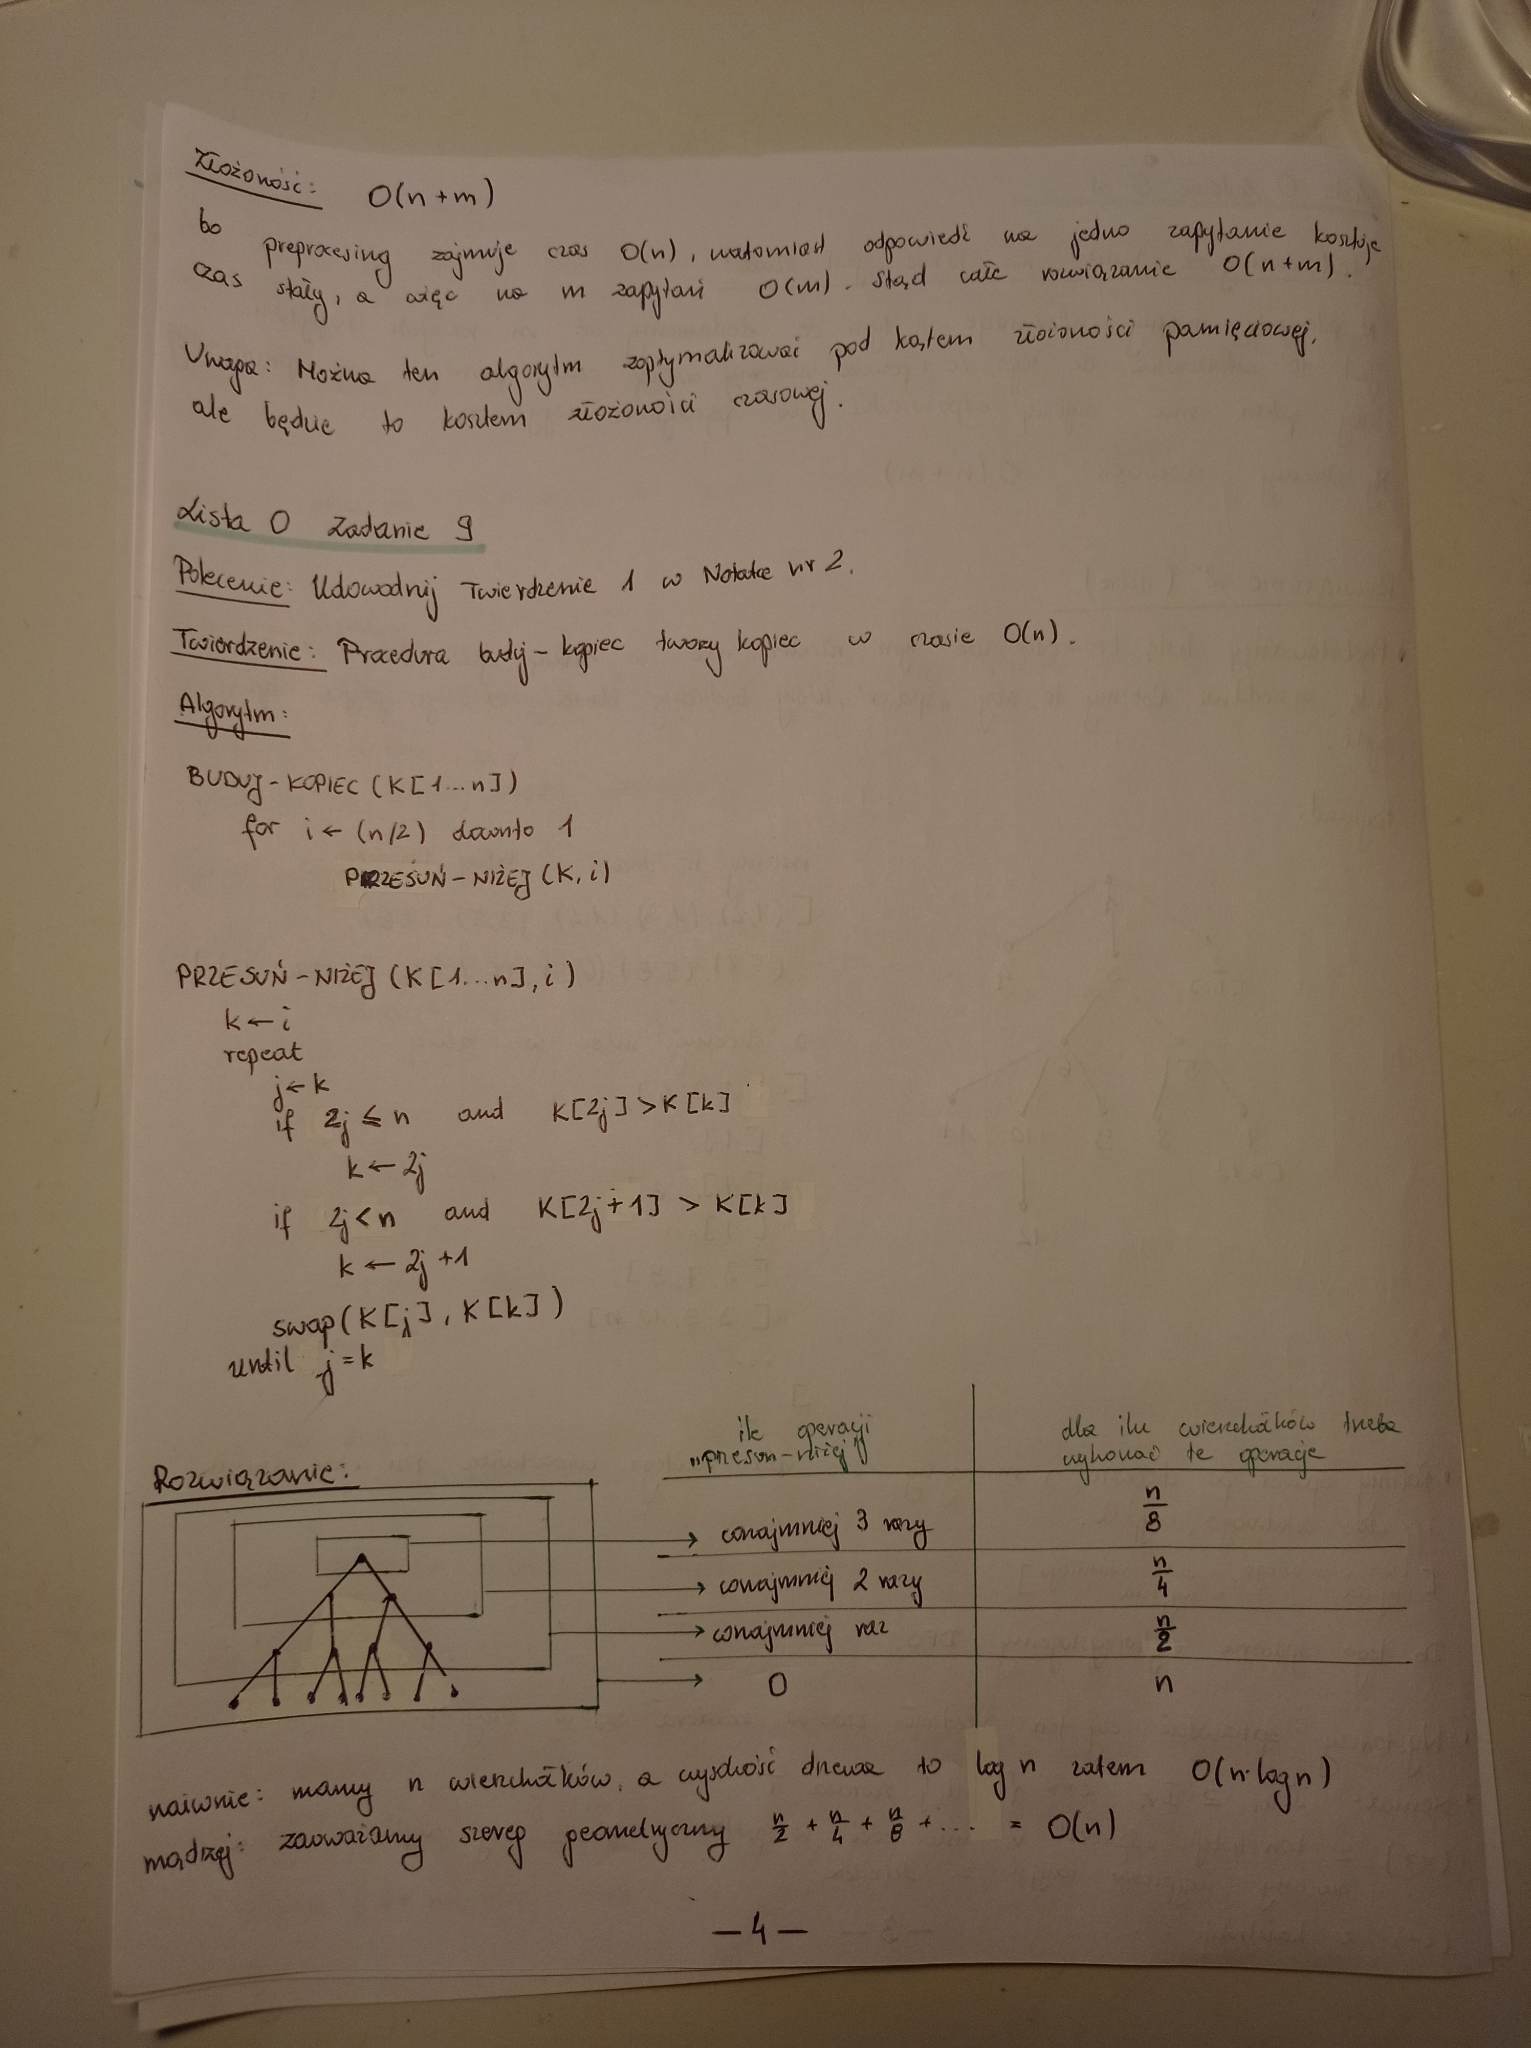 Złożoność: O(n+m)
bo preprocesing zajmuje czas O(n), natomiast odpowiedź na jedno zapytanie kosztuje
czas stały, a więc na m zapytań O(m). Stąd całe rozwiązanie O(n+m).
Uwaga: Można ten algorytm zoptymalizować pod kątem złożoności pamięciowej,
ale będzie to kosztem złożoności czasowej.
Lista 0 Zadanie 9
Polecenie: Udowodnij Twierdzenie 1 w Notatce nr 2.
Twierdzenie: Procedura buduj-kopiec tworzy kopiec w czasie O(n).
Algorytm:
BUDUJ-KOPIEC (K[1...n])
for i ← (n/2) downto 1
PRZESUŃ-NIŻEJ (K, i)
PRZESUŃ-NIŻEJ (K[1...n], i)
k ← i
repeat
j ← k
if 2j ≤ n and K[2j] > K[k]
k ← 2j
if 2j < n and K[2j+1] > K[k]
k ← 2j+1
swap(K[j], K[k])
until j = k
Rozwiązanie:
ile operacji
„przesun-niżej"
dla ilu wierzchołków trzeba
wykonać te operacje
conajmniej 3 razy n/8
conajmniej 2 razy n/4
conajmniej raz n/2
0 n
naiwnie: mamy n wierzchołków, a wysokość drzewa to log n zatem O(n·log n)
mądrzej: zauważamy szereg geometryczny n/2 + n/4 + n/8 + ... = O(n)
— 4 —